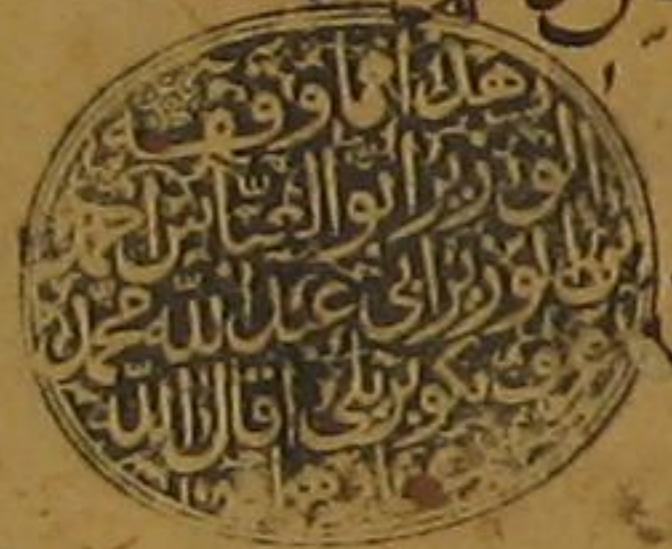 هذا ما وقفه
الوزير ابو العباس احمد
بن الوزير ابي عبد الله محمد
عرف بكوبريلي اقال الله